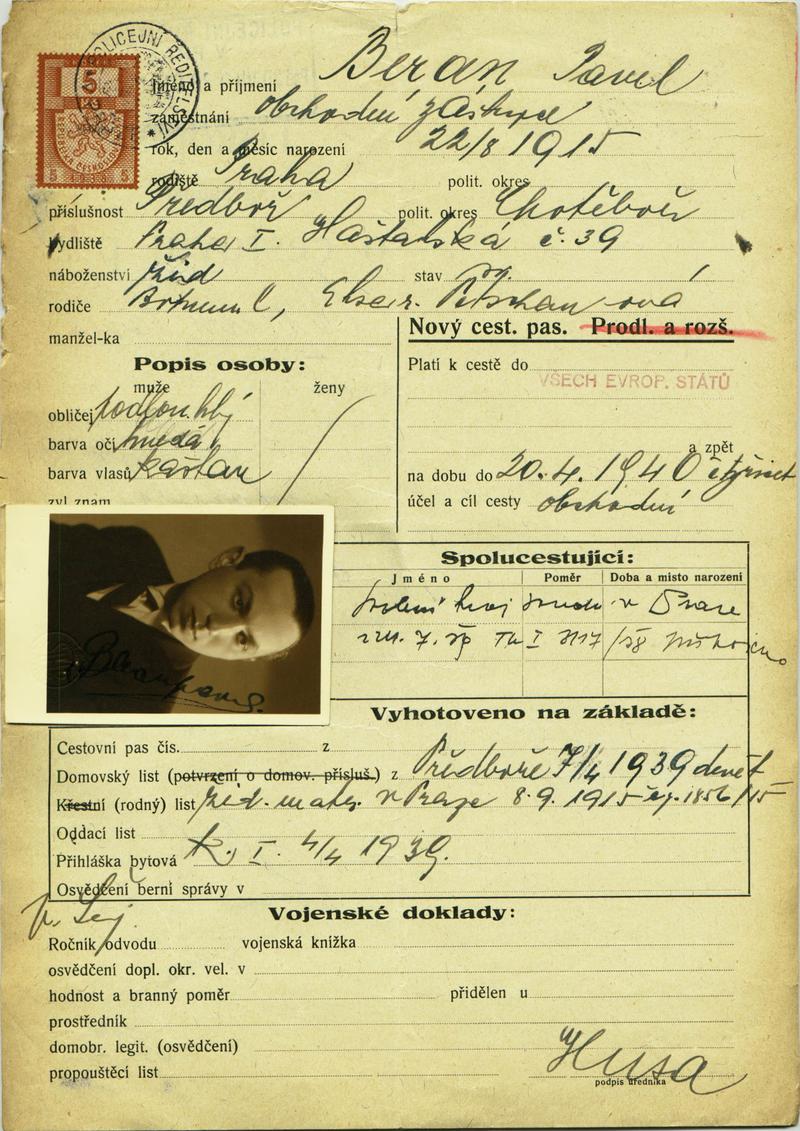 POLICEJNÍ ŘEDITELSTVÍ
5
REPUBLIKA ČESKOSLOVENSKÁ
5 5
Jméno a příjmení Beran Pavel
zaměstnání obchodní zástupce
rok, den a měsíc narození 22/8 1915
rodiště Praha polit. okres
příslušnost Předboř polit. okres Chotěboř
bydliště Praha I. Haštalská č. 39
náboženství žid stav sv.
rodiče Elsa r.
manžel-ka
Nový cest. pas. Prodl. a rozš.
Popis osoby:
muže ženy
Platí k cestě do VŠECH EVROP. STÁTŮ
obličej podlouhlý
barva očí hnědá
barva vlasů kaštan
zvl. znam.
a zpět
na dobu do 20.4. 1940 čtyřicet
účel a cíl cesty obchodní
Spolucestující:
Jméno Poměr Doba a místo narození
Vyhotoveno na základě:
Cestovní pas čís. z
Domovský list (potvrzení o domov. přísluš.) z Předboře 7/4 1939 devět
Křestní (rodný) list žid. matr. v Praze 8.9. 1915 čj. 1856/15
Oddací list
Přihláška bytová I. 4/4 1939.
Osvědčení berní správy v
Vojenské doklady:
Ročník odvodu vojenská knížka
osvědčení dopl. okr. vel. v
hodnost a branný poměr přidělen u
prostředník
domobr. legit. (osvědčení)
propouštěcí list
Husa
podpis úředníka